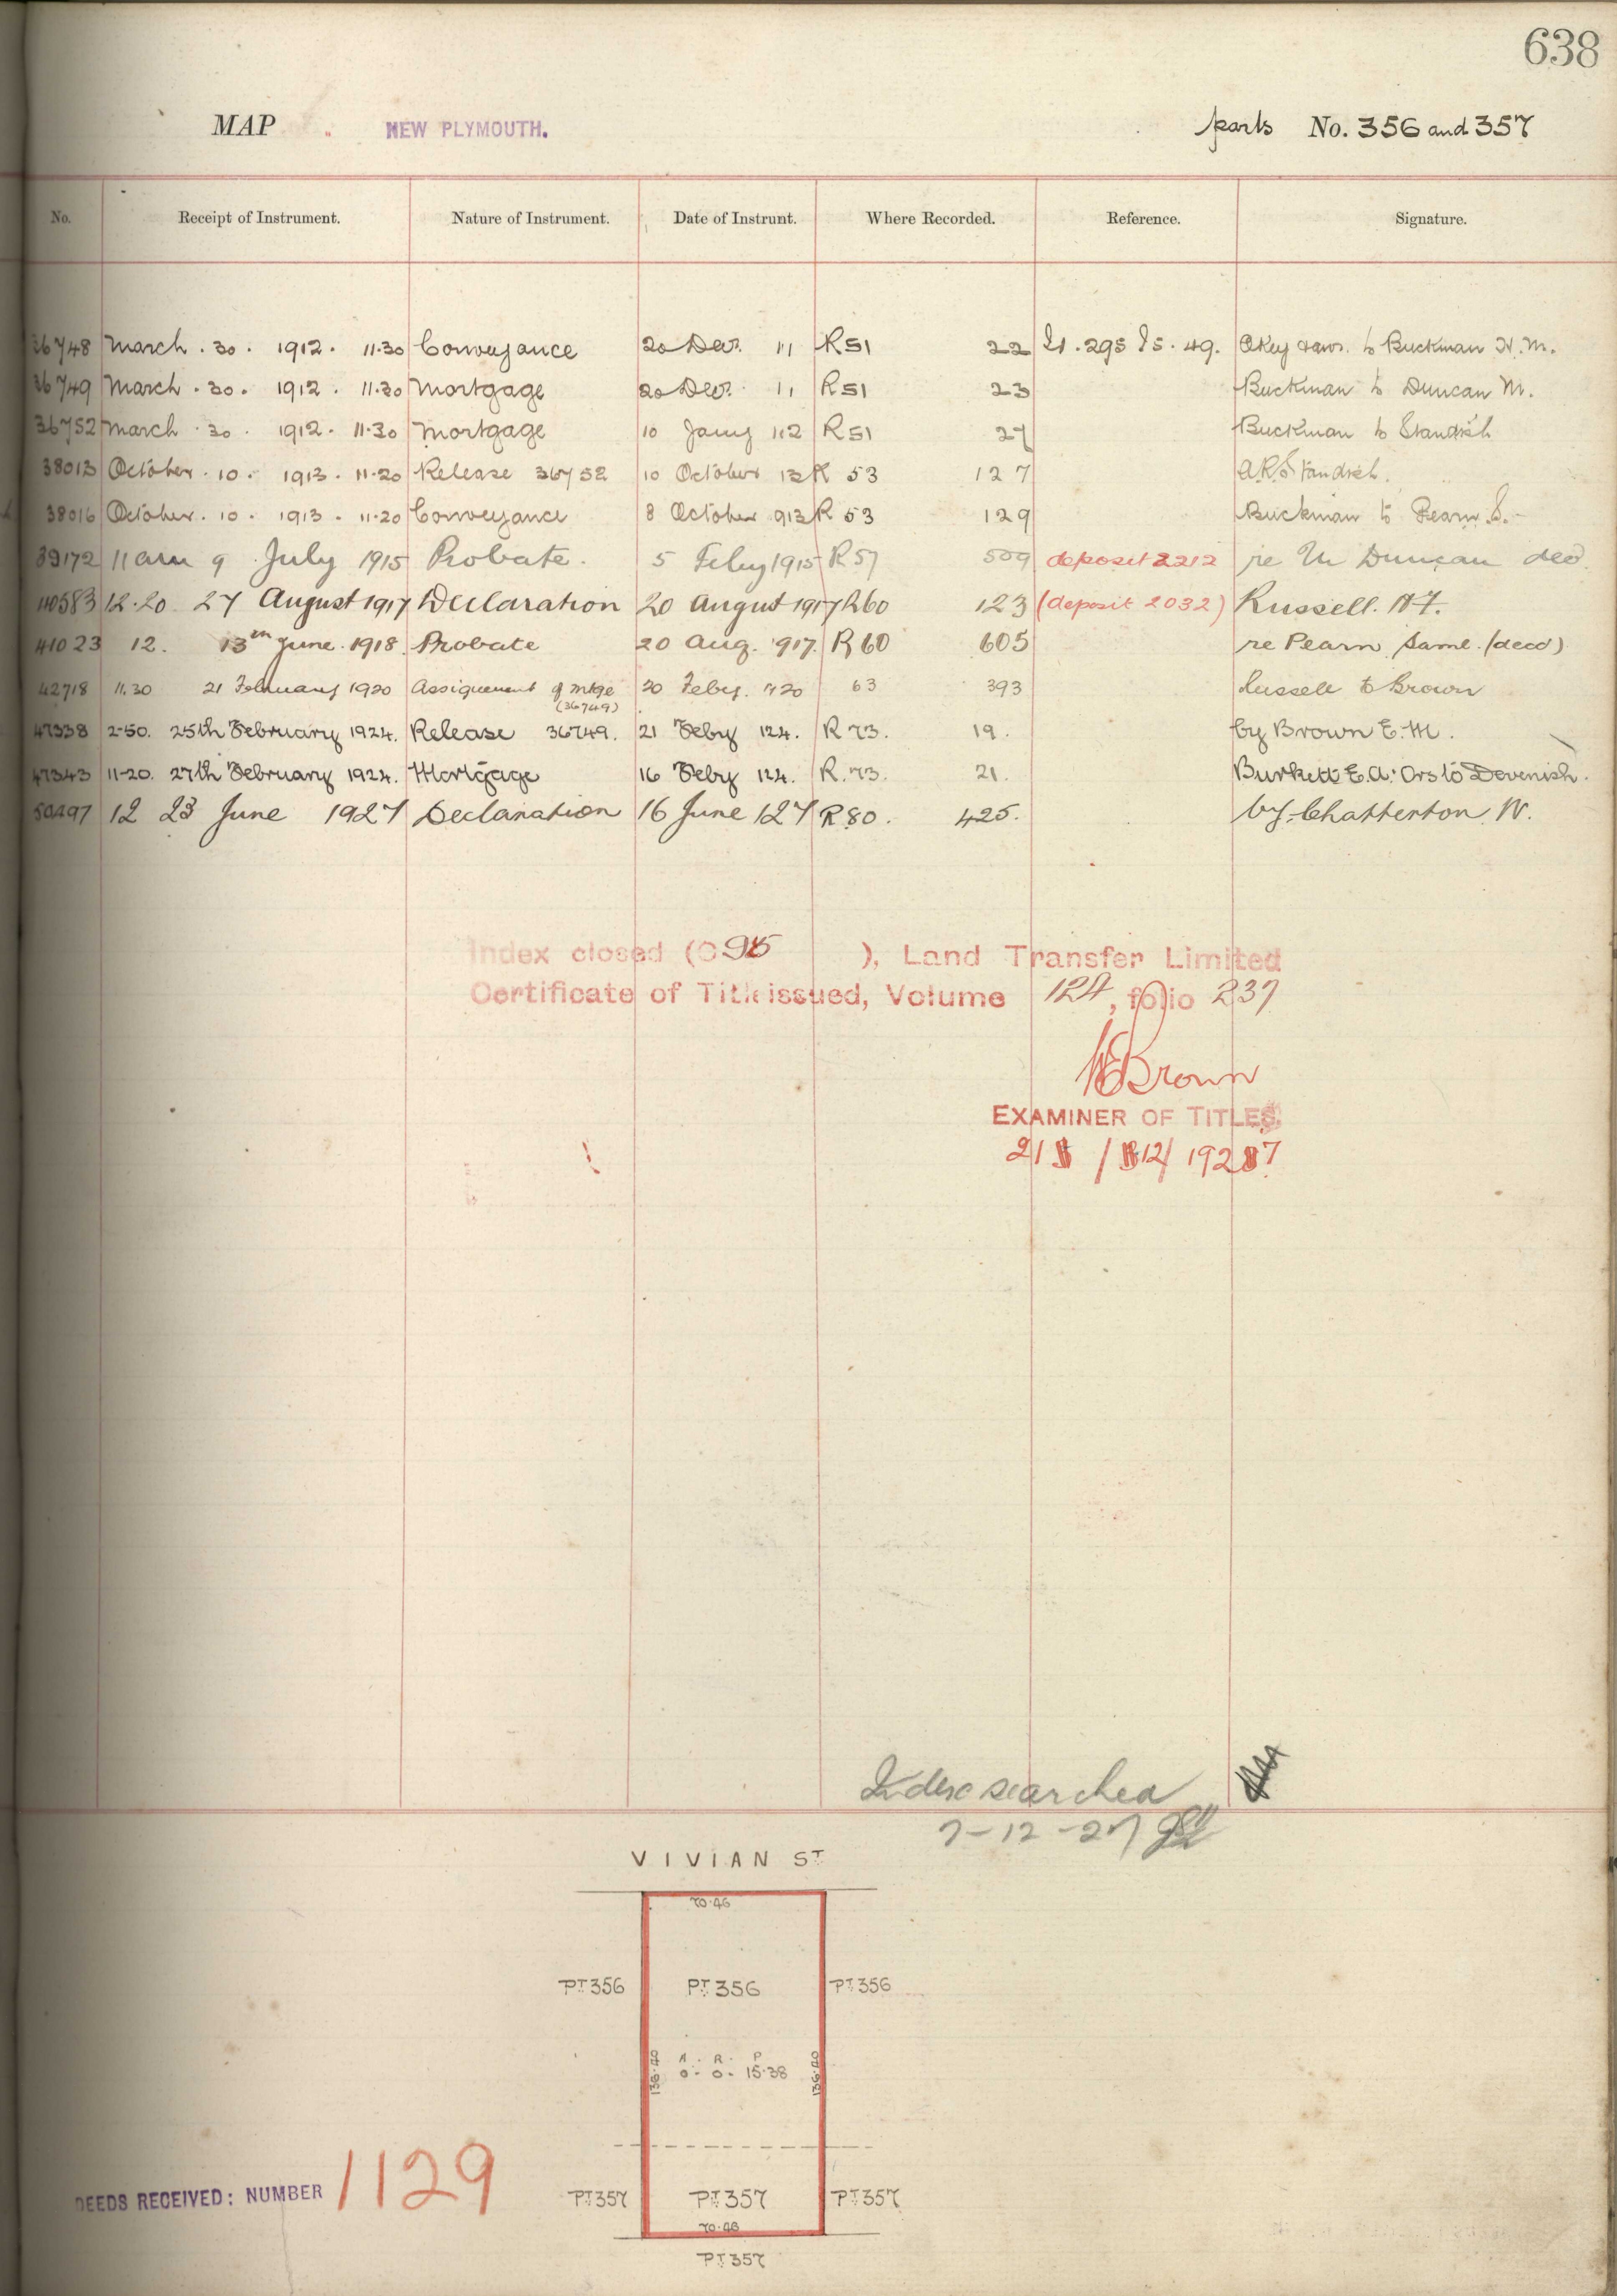 638
MAP NEW PLYMOUTH. parts No. 356 and 357
No. Receipt of Instrument. Nature of Instrument. Date of Instrunt. Where Recorded. Reference. Signature.
36748 March . 30 . 1912 . 11.30 Conveyance 20 Decr. 11 R51 22 295 49. Okey to Buckman H. M.
36749 March . 30 . 1912 . 11.30 Mortgage 20 Decr. 11 R51 23 Buckman to Duncan M.
36752 March . 30 . 1912 . 11.30 Mortgage 10 Jany 1.2 R51 27 Buckman to Standish
38013 October . 10 . 1913 . 11.20 Release 36752 10 October 13 R 53 127 Standish.
38016 October . 10 . 1913 . 11.20 Conveyance 8 October 913 R 53 129 Buckman to Pearn S.
39172 11 am 9 July 1915 Probate. 5 Feby 1915 R 57 509 deposit 2212 re M Duncan decd
40583 12.20 27 August 1917 Declaration 20 August 1917 R60 123 (deposit 2032) Russell.
41023 12. 13th June. 1918. Probate 20 Aug. '917. R 60 605 re Pearn Saml. (decd)
42718 11.30 21 February 1920 Assignment of Mtge (36749) 20 Feby. '20 63 393 Russell to Brown
47338 2-50. 25th February 1924. Release 36749. 21 Feby 124. R 73. 19. by Brown E. M.
47343 11-20. 27th February 1924. Mortgage 16 Feby 124. R. 73. 21. Burkett E. A. Ors to Devenish.
50497 12 23 June 1927 Declaration 16 June 127 R 80. 425. by Chatterton W.
Index closed (C ), Land Transfer Limited
Certificate of Title issued, Volume 124, folio 237
Brown
EXAMINER OF TITLES
21 / 12/ 1927
Index searched
7-12-27
VIVIAN ST
70.46
PT 356 PT 356 PT 356
136.40 A. R. P 136.40
0. 0. 15.38
DEEDS RECEIVED: NUMBER 1129
PT 357 PT 357 PT 357
70.46
PT 357